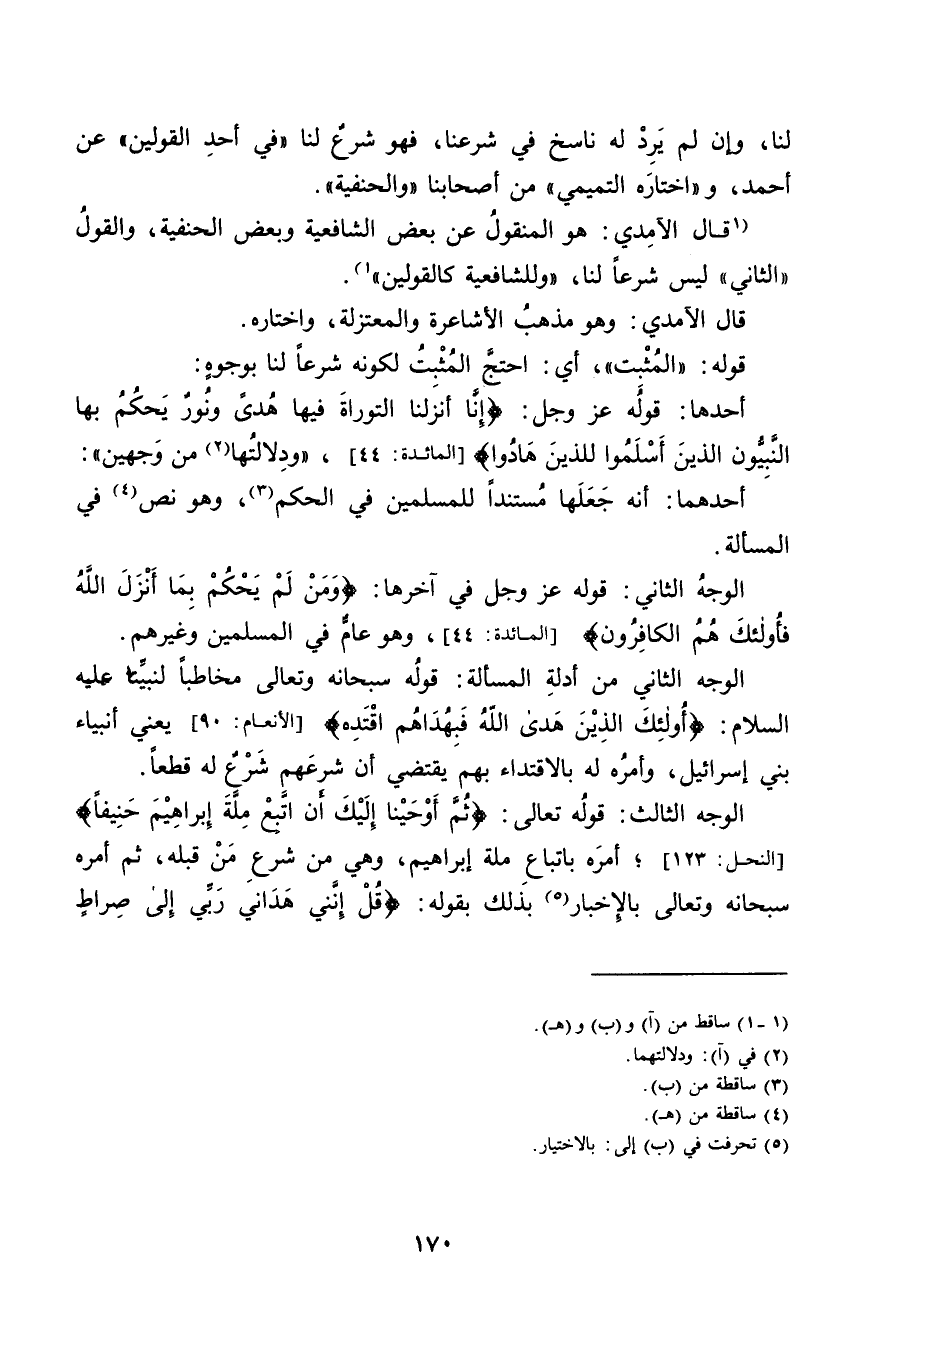 لنا، وإن لم يَرِدْ له ناسخ في شرعنا، فهو شرعٌ لنا «في أحدِ القولين» عن
أحمد، و «اختارَه التميمي» من أصحابنا «والحنفية».
(١قال الآمِدي: هو المنقولُ عن بعض الشافعية وبعض الحنفية، والقولُ
«الثاني» ليس شرعاً لنا، «وللشافعية كالقولين»١).
قال الآمدي: وهو مذهبُ الأشاعرة والمعتزلة، واختاره.
قوله: «المُثْبِت»، أي: احتجَّ المُثْبِتُ لكونه شرعاً لنا بوجوهٍ:
أحدها: قولُه عز وجل: ﴿إنَّا أنزلنا التوراةَ فيها هُدىً ونُورٌ يَحكُمُ بها
النَّبِيُّون الذينَ أَسْلَمُوا للذينَ هَادُوا﴾ [المائدة: ٤٤] ، «ودِلالتُها(٢) من وَجهين»:
أحدهما: أنه جَعَلَها مُستنداً للمسلمين في الحكم(٣)، وهو نص(٤) في
المسألة.
الوجهُ الثاني: قوله عز وجل في آخرها: ﴿وَمَنْ لَمْ يَحْكُمْ بِمَا أَنْزَلَ اللَّهُ
فأُولٰئكَ هُمُ الكافِرُون﴾ [المائدة: ٤٤]، وهو عامٌّ في المسلمين وغيرهم.
الوجه الثاني من أدلةِ المسألة: قولُه سبحانه وتعالى مخاطباً لنبيِّنا عليه
السلام: ﴿أُولٰئِكَ الذِيْنَ هَدىٰ اللّهُ فَبِهُدَاهُم اقْتَدِه﴾ [الأنعام: ٩٠] يعني أنبياء
بني إسرائيل، وأمرُه له بالاقتداء بهم يقتضي أن شرعَهم شَرْعٌ له قطعاً.
الوجه الثالث: قولُه تعالى: ﴿ثُمَّ أَوْحَيْنا إلَيْكَ أَن اتَّبِعْ مِلَّةَ إبراهِيْمَ حَنِيفاً﴾
[النحل: ١٢٣] ؛ أمرَه باتباعِ ملة إبراهيم، وهي من شرعِ مَنْ قبله، ثم أمره
سبحانه وتعالى بالإِخبار(٥) بذلك بقوله: ﴿قُلْ إنَّني هَدَاني رَبِّي إلىٰ صِراطٍ
(١ -١) ساقط من (آ) و(ب) و(هـ).
(٢) في (آ): ودلالتهما.
(٣) ساقطة من (ب).
(٤) ساقطة من (هـ).
(٥) تحرفت في (ب) إلى: بالاختيار.
١٧٠